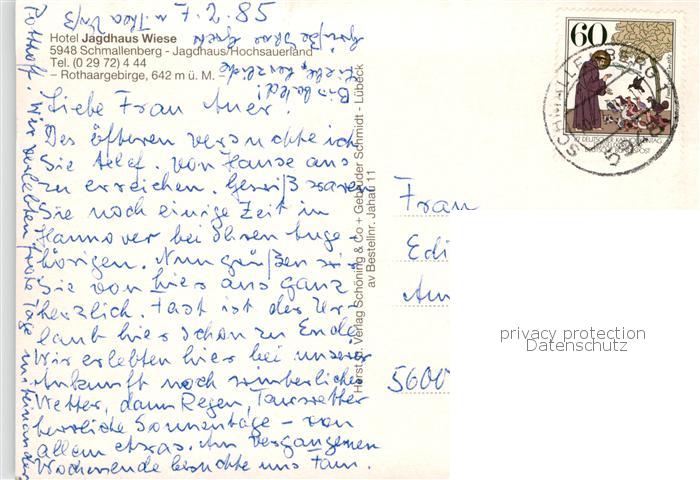 7.2.85
Hotel Jagdhaus Wiese
5948 Schmallenberg - Jagdhaus/Hochsauerland
Tel. (0 29 72) 4 44
– Rothaargebirge, 642 m ü. M. –
Liebe Frau Auer.
Des öfteren versuchte ich
Sie telef. von Hause aus
zu erreichen. Gewiß waren
Sie noch einige Zeit in
Hannover bei Ihren Ange-
hörigen. Nun grüßen wir
Sie von hier aus ganz
herzlich. Fast ist der Ur-
laub hier schon zu Ende.
Wir erlebten hier bei unserer
Ankunft noch winterliches
Wetter, dann Regen, Tauwetter
herrliche Sonnentage – von
allem etwas. Am vergangenen
Wochenende besuchte uns Fam.
Potthoff. Wir verlebten frohe Tage miteinander
Bis bald!
Liebe, herzliche
Grüße Ihre
Horst G. Verlag Schöning & Co + Gebrüder Schmidt - Lübeck
av Bestellnr. Jahau 11
60
SCHMALLENBERG 1
Frau
Edi
Au
5600
privacy protection
Datenschutz